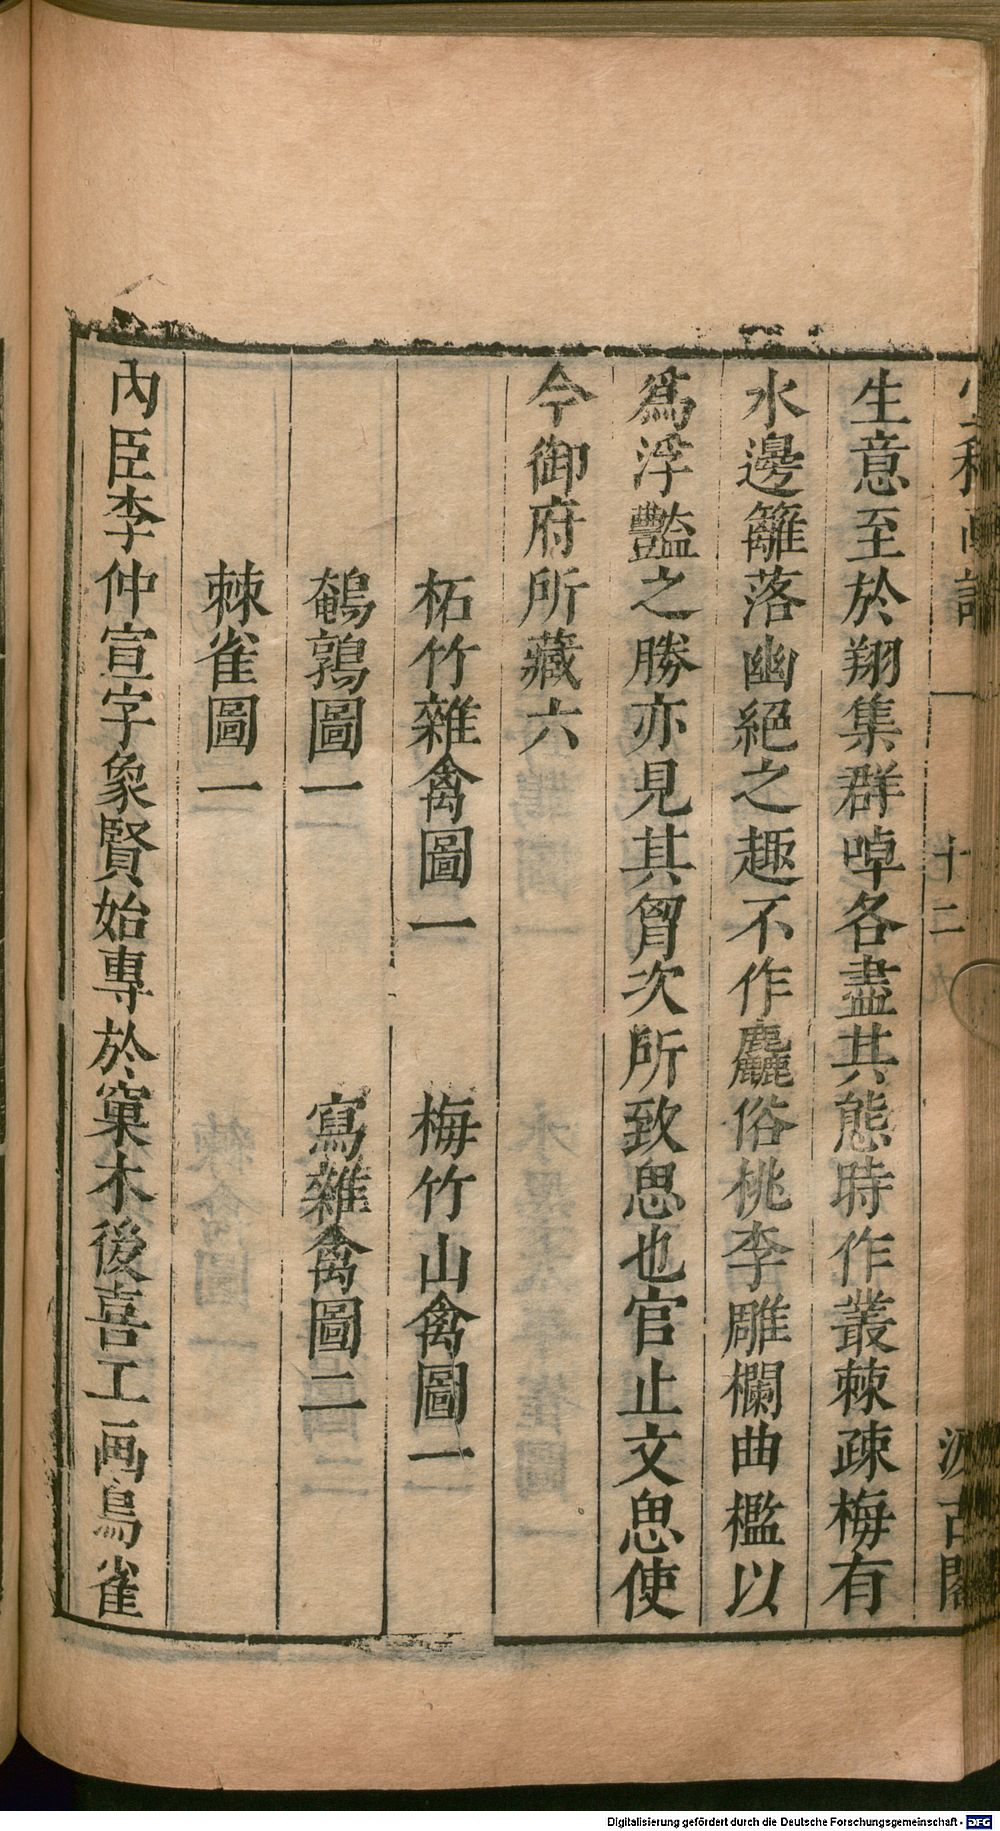 生意至於翔集群啅各盡其態時作叢棘疎梅有
水邊籬落幽絕之趣不作麤俗桃李雕欄曲檻以
爲浮豔之勝亦見其胷次所致思也官止文思使
今御府所藏六
柘竹雜禽圖一 梅竹山禽圖一
鵪鶉圖一 寫雜禽圖二
棘雀圖一
內臣李仲宣字象賢始專於窠木後喜工画鳥雀
十二
Digitalisierung gefördert durch die Deutsche Forschungsgemeinschaft - DFG